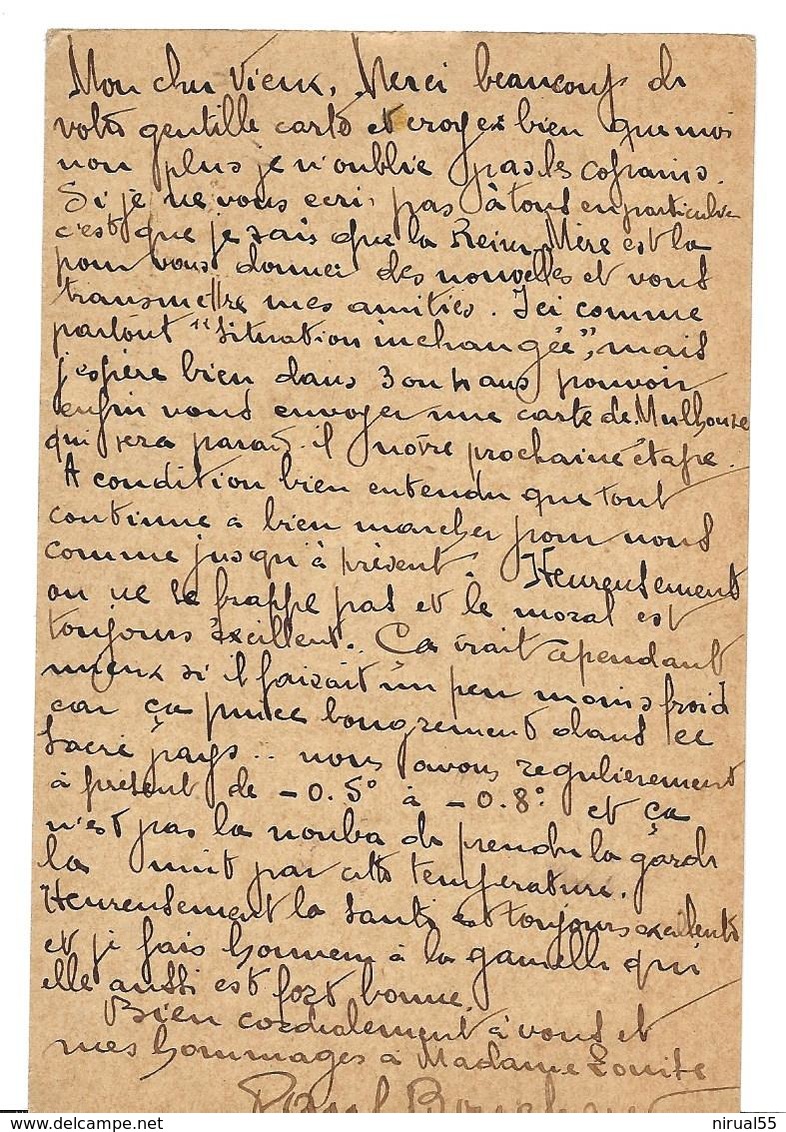 Mon cher Vieux, Merci beaucoup de
votre gentille carte et croyez bien que moi
non plus je n'oublie pas les copains.
Si je ne vous ecris pas à tous en particulier
c'est que je sais que la Reine Mère est la
pour vous donner des nouvelles et vous
transmettre mes amitiés. Ici comme
partout "situation inchangée", mais
j'espère bien dans 3 ou 4 ans pouvoir
enfin vous envoyer une carte de Mulhouse
qui sera parait-il notre prochaine étape.
A condition bien entendu que tout
continue a bien marcher pour nous
comme jusqu'à présent. Heureusement
on ne se frappe pas et le moral est
toujours excellent. Ca irait cependant
mieux si il faisait un peu moins froid
car ça pince bougrement dans ce
sacré pays.. nous avons regulierement
à présent de -0.5° à -0.8° et ça
n'est pas la nouba de prendre la garde
la nuit par cette temperature.
Heureusement la santé est toujours excellente
et je fais honneur à la gamelle qui
elle aussi est fort bonne.
Bien cordialement à vous et
mes hommages à Madame
Paul
nirual55